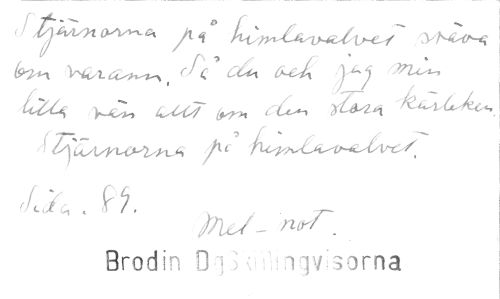 Stjärnorna på himlavalvet sväva
om varann. Så du och jag min
lilla vän allt om den stora kärleken.
Stjärnorna på himlavalvet.
Sida. 89.
Mel-not.
Brodin Dg Skillingvisorna